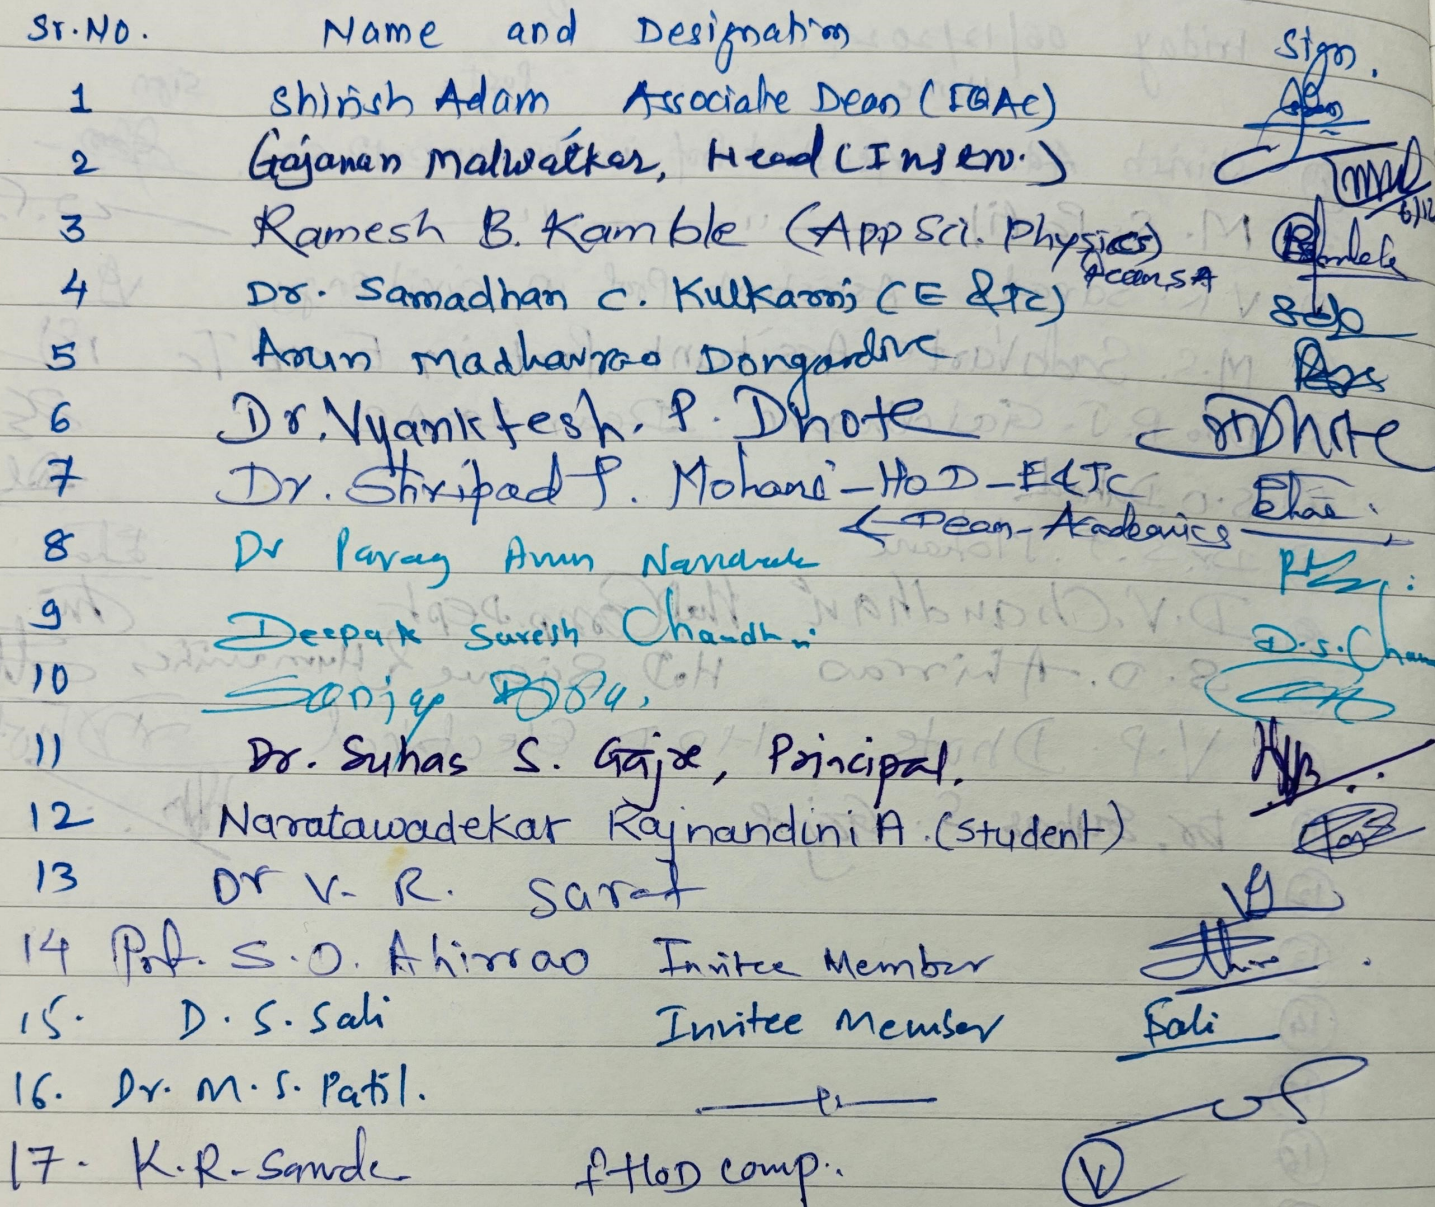 Sr.No. Name and Designation Sign.
1 Shirish Adam Associate Dean (IQAC)
2 Gajanan Malwatkar, Head (Instru.)
3 Ramesh B. Kamble (App Sci. Physics)
4 Dr. Samadhan C. Kulkarni (E &TC)
5 Arun Madhavrao Dongardive
6 Dr. Vyanktesh. P. Dhote Dhote
7 Dr. Shripad P. Mohani - HoD - E&TC
Dean - Academics
8 Dr Parag Arun
9 Deepak Suresh Chaudhari D.S.Chau
10 Sanjay
11 Dr. Suhas S. Gajre, Principal.
12 Naratawadekar Rajnandini A. (Student)
13 Dr V. R.
14 Prof. S.O. Ahirrao Invitee Member
15. D. S. Sali Invitee Member Sali
16. Dr. M. S. Patil.
17. K.R. HOD Comp.